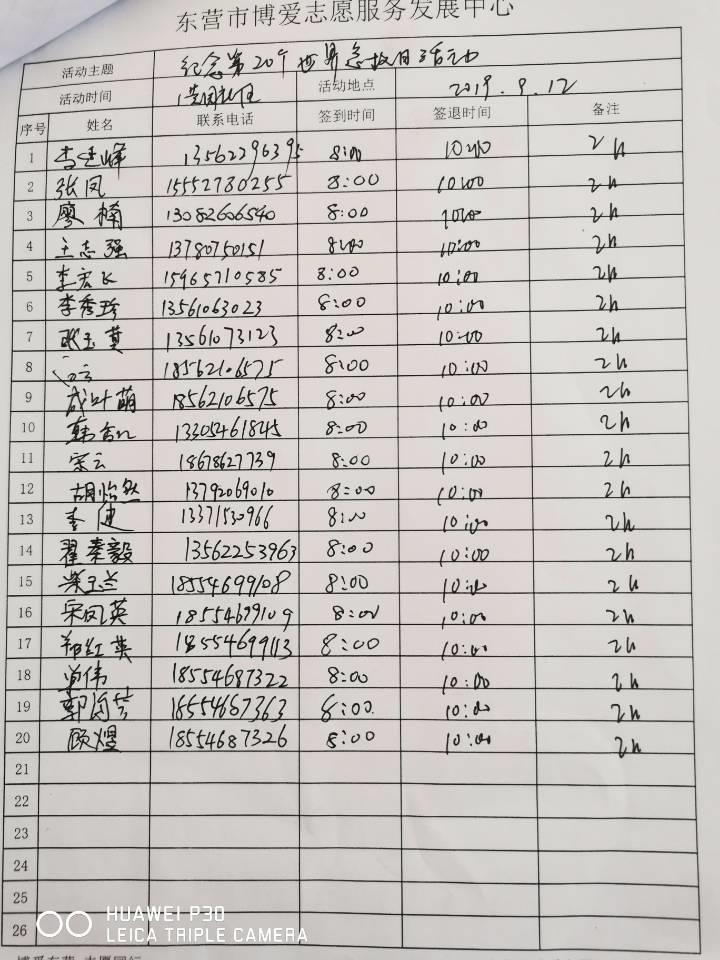 东营市博爱志愿服务发展中心
活动主题 纪念第20个世界急救日活动
活动时间 活动地点 2019.9.12
序号 姓名 联系电话 签到时间 签退时间 备注
1 13562296395 8:00 10:00 2h
2 张凤 15552780255 8:00 10:00 2h
3 廖楠 13082606540 8:00 10:00 2h
4 王志强 13780750151 8:00 10:00 2h
5 李宏飞 15965710585 8:00 10:00 2h
6 李秀珍 13561063023 8:00 10:00 2h
7 张玉莫 13561073123 8:00 10:00 2h
8 18562106575 8:00 10:00 2h
9 成叶萌 18562106575 8:00 10:00 2h
10 13305461845 8:00 10:00 2h
11 宋云 18678627739 8:00 10:00 2h
12 胡怡然 13792069010 8:00 10:00 2h
13 李健 13371530966 8:00 10:00 2h
14 翟秦毅 13562253963 8:00 10:00 2h
15 柴玉兰 18554699108 8:00 10:00 2h
16 宋凤英 18554699109 8:00 10:00 2h
17 18554699113 8:00 10:00 2h
18 18554687322 8:00 10:00 2h
19 18554687363 8:00 10:00 2h
20 顾煜 18554687326 8:00 10:00 2h
21
22
23
24
25
26
HUAWEI P30
LEICA TRIPLE CAMERA